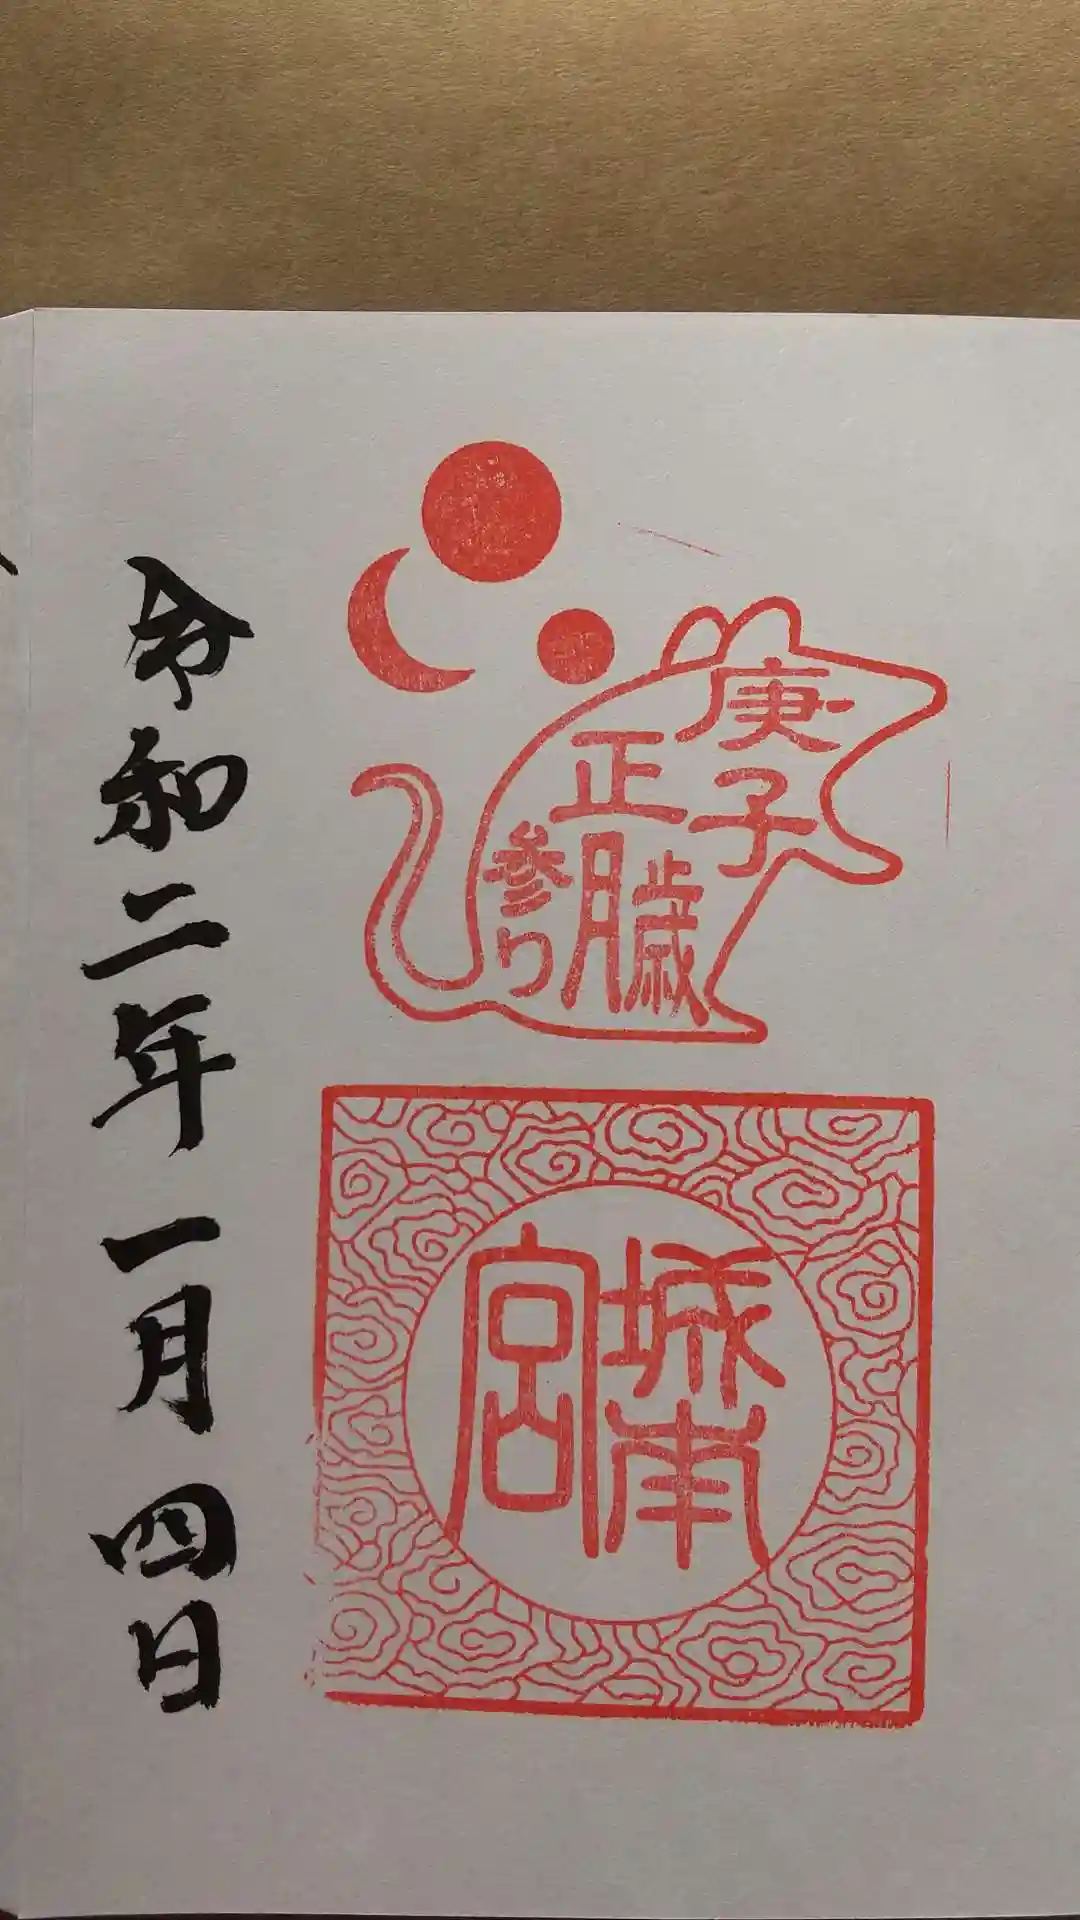 庚子歳
正月
参り
城南
宮
令和二年一月四日